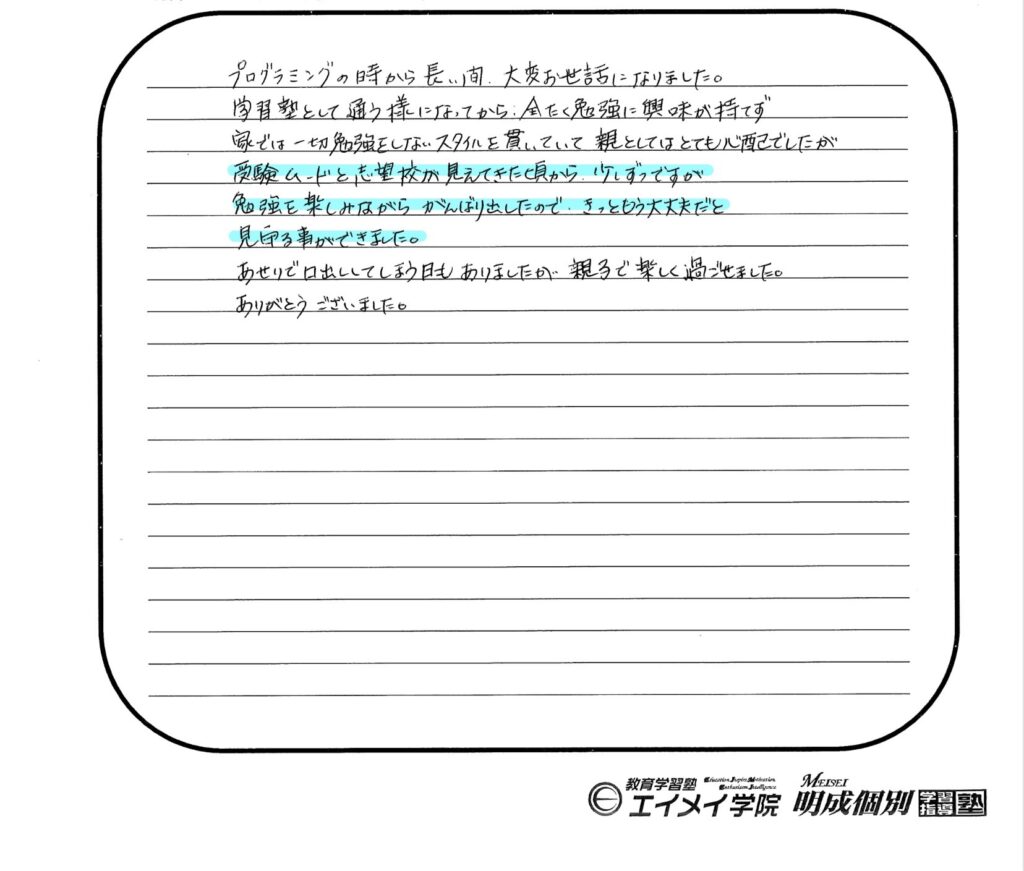 プログラミングの時から長い間、大変お世話になりました。
学習塾として通う様になってから、全たく勉強に興味が持てず
家では一切勉強をしないスタイルを貫いていて 親としてはとても心配でしたが
受験ムードと志望校が見えてきた頃から、少しずつですが
勉強を楽しみながら がんばり出したので、きっともう大丈夫だと
見守る事ができました。
あせりで口出ししてしまう日もありましたが、親子で楽しく過ごせました。
ありがとうございました。
教育学習塾 Education Inspires Motivation
Enthusiasm Intelligence
エイメイ学院
MEISEI
明成個別 学習指導塾